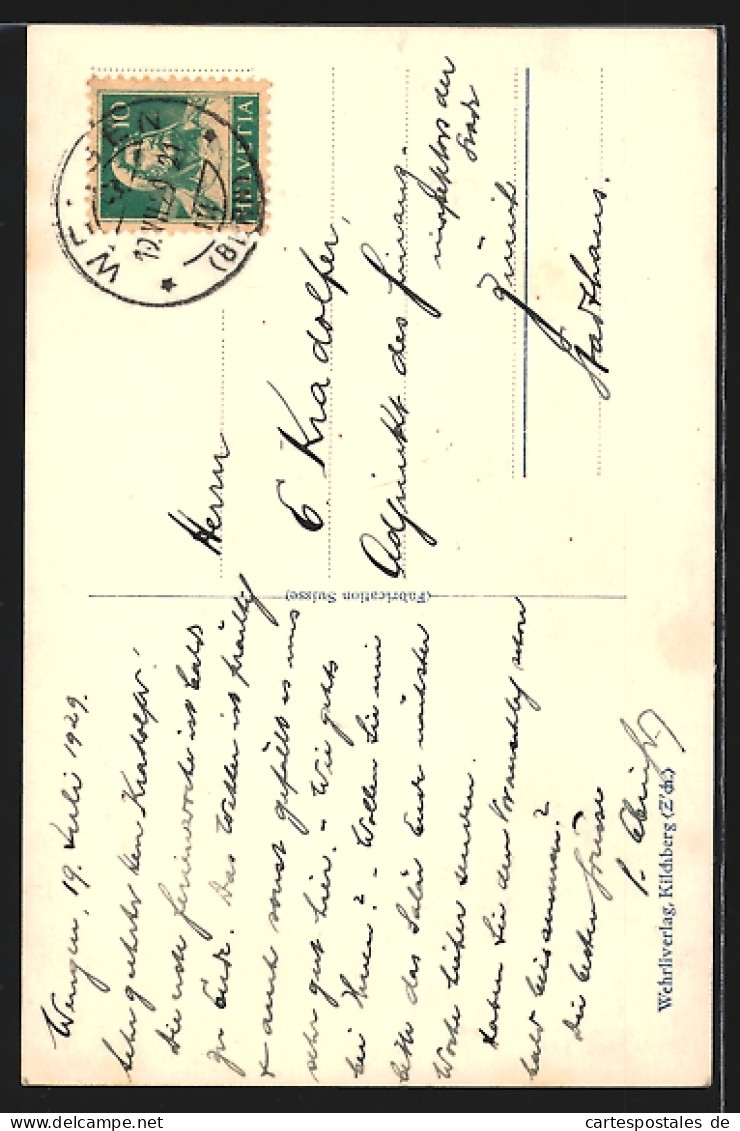 Wengen, 19. Juli 1929.
Sehr geehrter Herr Kradolfer!
Die erste Ferienwoche ist bald
zu Ende. Das Wetter ist prächtig
& auch sonst gefällt es uns
sehr gut hier. – Wie gehts
bei Ihnen? – Wollen Sie mir
bitte das Salär Ende nächster
Woche hieher senden.
Haben Sie den Voranschlag schon
bald beisammen?
Die besten Grüsse
Herrn
E. Kradolfer,
Adjunkt des Finanz-
inspektors der
Stadt
Zürich
Stadthaus.
(Fabrication Suisse)
Wehrliverlag, Kilchberg (Z'ch.)
10
HELVETIA
WENGEN
(BERN)
cartespostales de